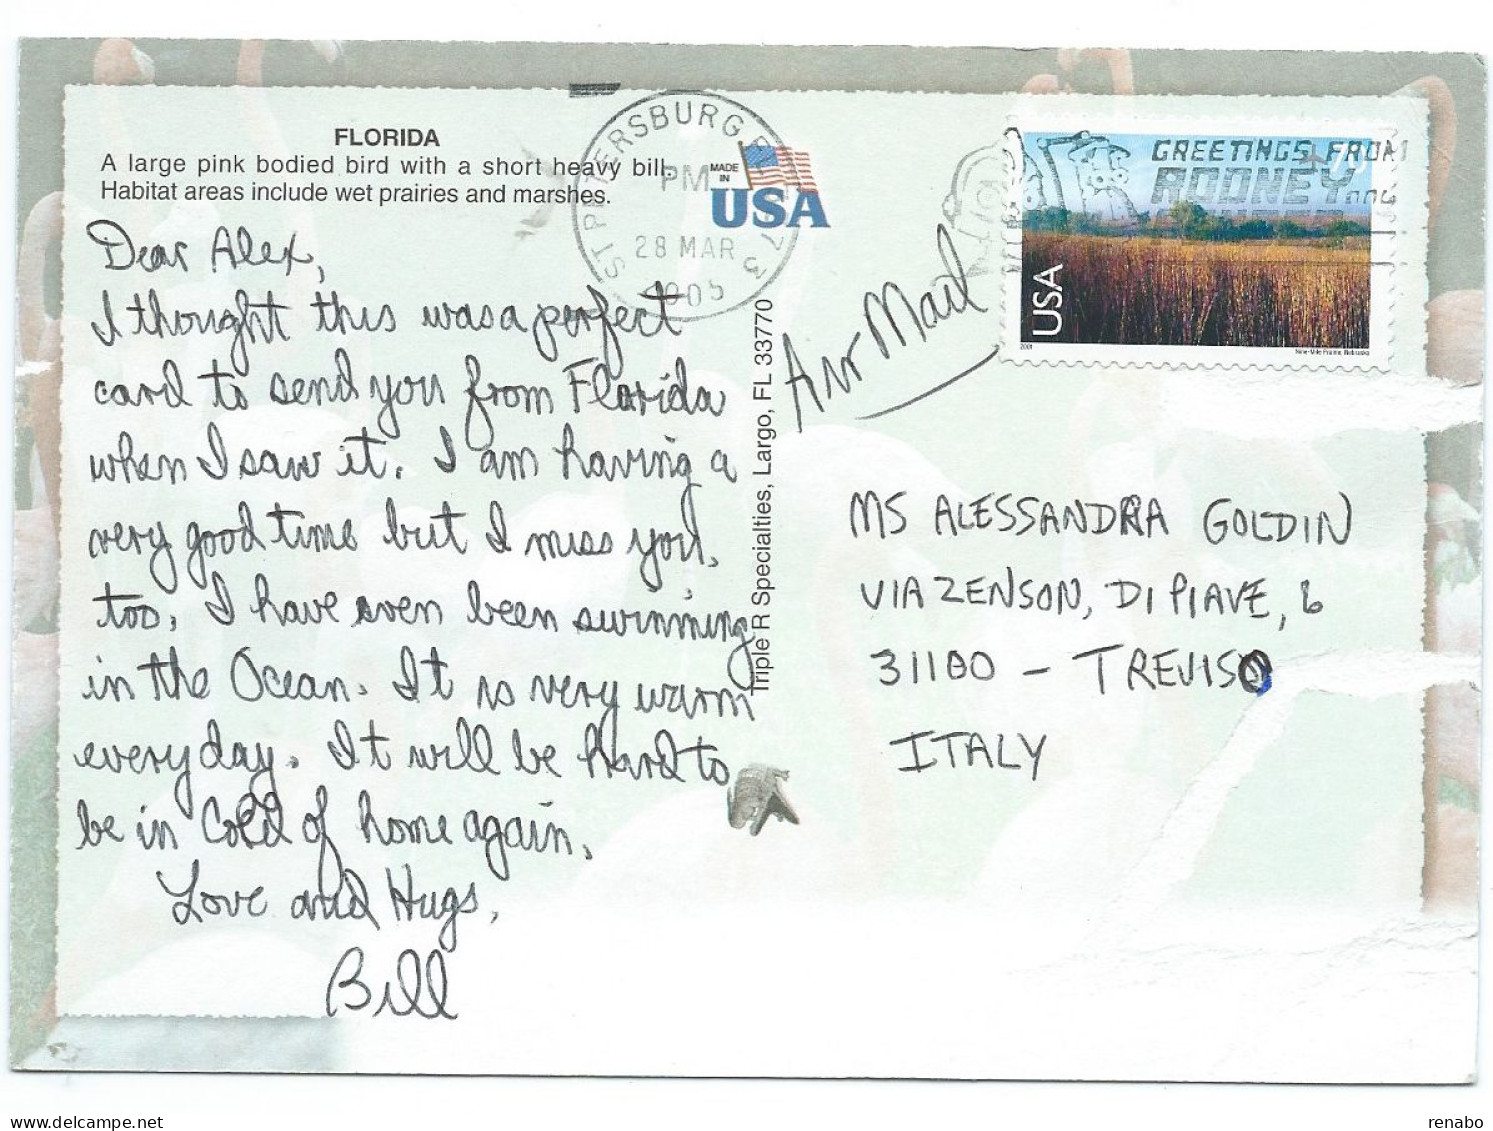 FLORIDA
A large pink bodied bird with a short heavy bill.
Habitat areas include wet prairies and marshes.
Dear Alex,
I thought this was a perfect
card to send you from Florida
when I saw it. I am having a
very good time but I miss you,
too. I have even been swimming
in the Ocean. It is very warm
everyday. It will be hard to
be in Cold of home again.
Love and Hugs,
Bill
ST PETERSBURG
PM
28 MAR
2005
MADE
IN
USA
Triple R Specialties, Largo, FL 33770
Air Mail
GREETINGS FROM
RODNEY AND
USA
2001
Nine-Mile Prairie, Nebraska
MS ALESSANDRA GOLDIN
VIA ZENSON, DI PIAVE, 6
31100 - TREVISO
ITALY
renabo